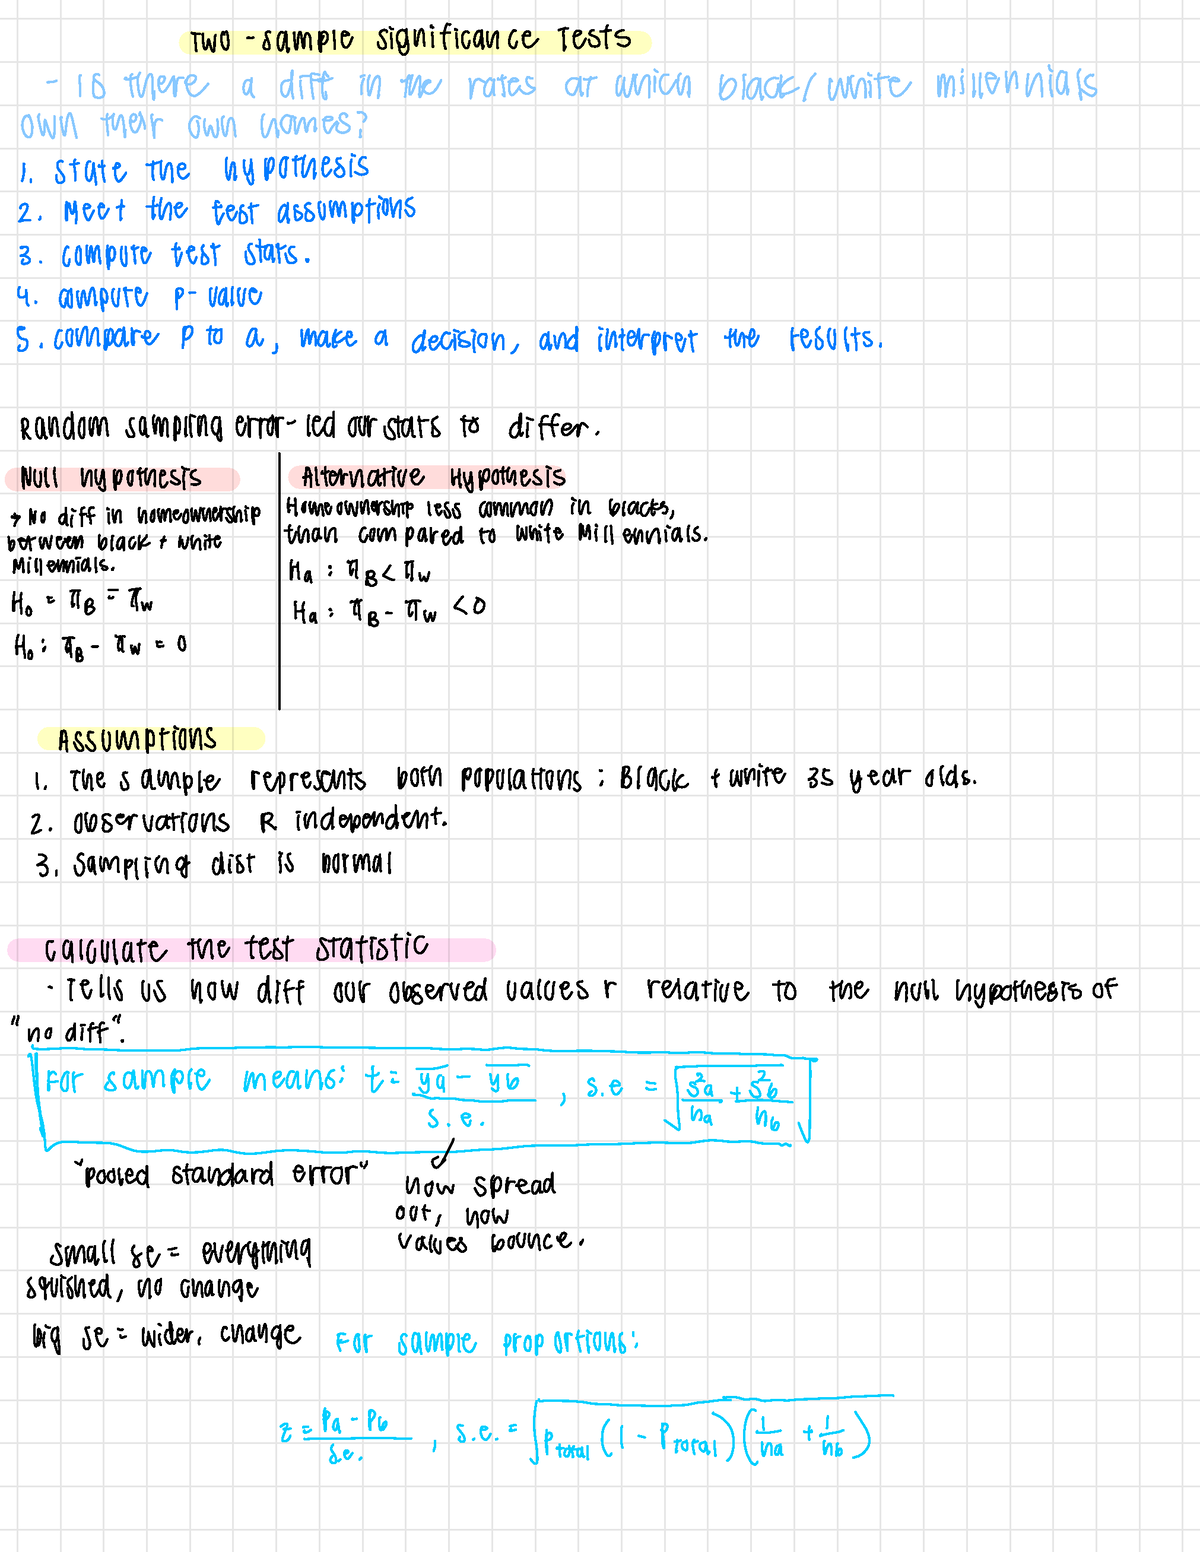 Two-sample significance Tests
- Is there a diff in the rates at which black/white millennials
own their own homes?
1. State the hypothesis
2. Meet the test assumptions
3. compute test stats.
4. compute p-value
5. compare p to a, make a decision, and interpret the results.
Random sampling error- led our stats to differ.
Null hypothesis
→ No diff in homeownership
between black + white
Millennials.
H₀ = π_B = π_W
H₀: π_B - π_W = 0
Alternative Hypothesis
Homeownership less common in blacks,
than compared to white Millennials.
Ha: π_B < π_W
Ha: π_B - π_W < 0
Assumptions
1. The sample represents both populations; Black + white 35 year olds.
2. observations R independent.
3. Sampling dist is normal
Calculate the test statistic
- Tells us how diff our observed values r relative to the null hypothesis of
"no diff".
For sample means: t = (ȳa - ȳb) / s.e. , s.e = √(s²a/na + s²b/nb)
"pooled standard error"
how spread
out, how
values bounce.
small se = everything
squished, no change
big se = wider, change
For sample proportions:
z = (Pa - Pb) / se. , s.e. = √(Ptotal (1 - Ptotal) (1/na + 1/nb))